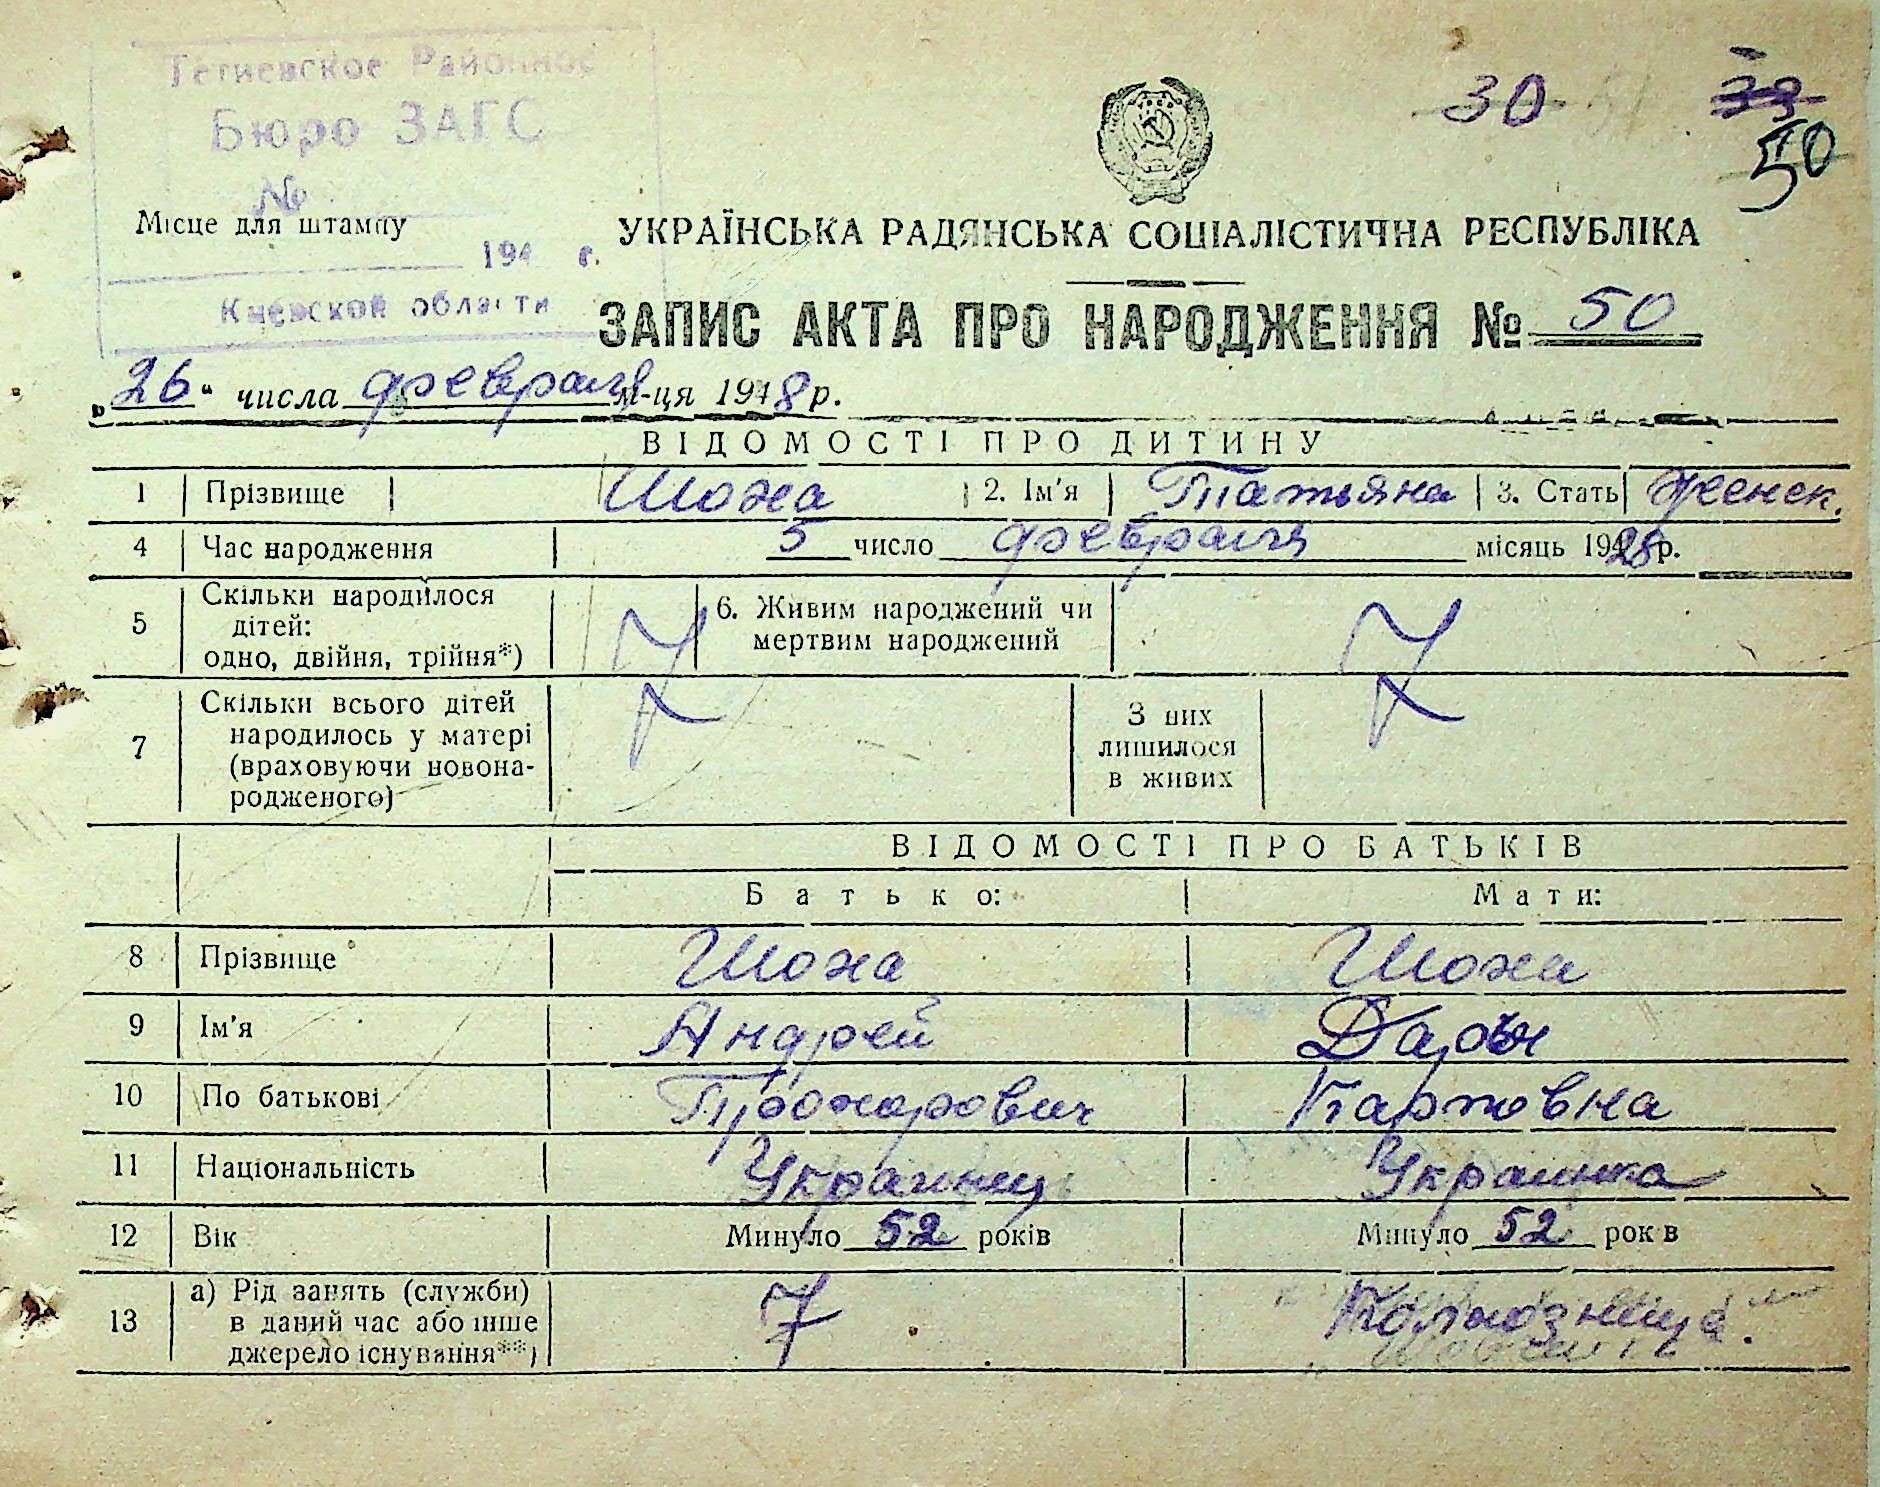 Тетиевское Районное
Бюро ЗАГС
№
194 г.
Киевской области
30
33
50
Місце для штампу
УКРАЇНСЬКА РАДЯНСЬКА СОЦІАЛІСТИЧНА РЕСПУБЛІКА
ЗАПИС АКТА ПРО НАРОДЖЕННЯ № 50
„26" числа февраля м-ця 1948 р.
ВІДОМОСТІ ПРО ДИТИНУ
1 Прізвище Шоха 2. Ім'я Татьяна 3. Стать женск.
4 Час народження 5 число февраля місяць 1928 р.
5 Скільки народилося дітей: одно, двійня, трійня*) 6. Живим народжений чи мертвим народжений
7 Скільки всього дітей народилось у матері (враховуючи новонародженого) З них лишилося в живих
ВІДОМОСТІ ПРО БАТЬКІВ
Батько: Мати:
8 Прізвище Шоха Шоха
9 Ім'я Андрей Дарья
10 По батькові Прохорович Карповна
11 Національність Украинец Украинка
12 Вік Минуло 52 років Минуло 52 років
13 а) Рід занять (служби) в даний час або інше джерело існування**) Колхозница.